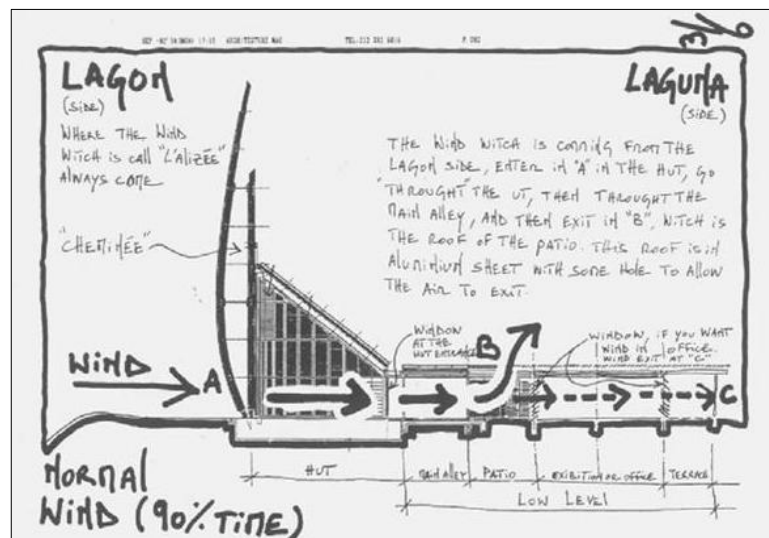 3/6
LAGON
(SIDE)
WHERE THE WIND
WITCH IS CALL "L'ALIZÉE"
ALWAYS COME
LAGUNA
(SIDE)
THE WIND WITCH IS COMING FROM THE
LAGON SIDE, ENTER IN "A" IN THE HUT, GO
"THROUGHT" THE UT, THEN THROUGHT THE
MAIN ALLEY, AND THEN EXIT IN "B", WITCH IS
THE ROOF OF THE PATIO. THIS ROOF IS IN
ALUMINIUM SHEET WITH SOME HOLE TO ALLOW
THE AIR TO EXIT.
"CHEMINÉE"
WINDOW
AT THE
HUT ENTRANCE
B
WINDOW, IF YOU WANT
WIND IN OFFICE.
WIND EXIT AT "C"
WIND
A
C
HUT
MAIN ALLEY
PATIO
EXIBITION OR OFFICE
TERRACE
LOW LEVEL
NORMAL
WIND (90% TIME)